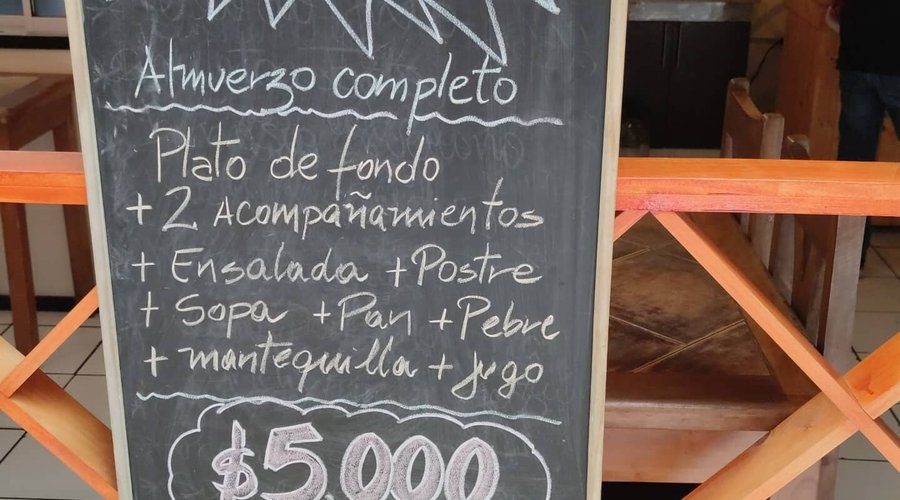 Almuerzo completo
Plato de fondo
+ 2 Acompañamientos
+ Ensalada + Postre
+ Sopa + Pan + Pebre
+ mantequilla + jugo
$5.000